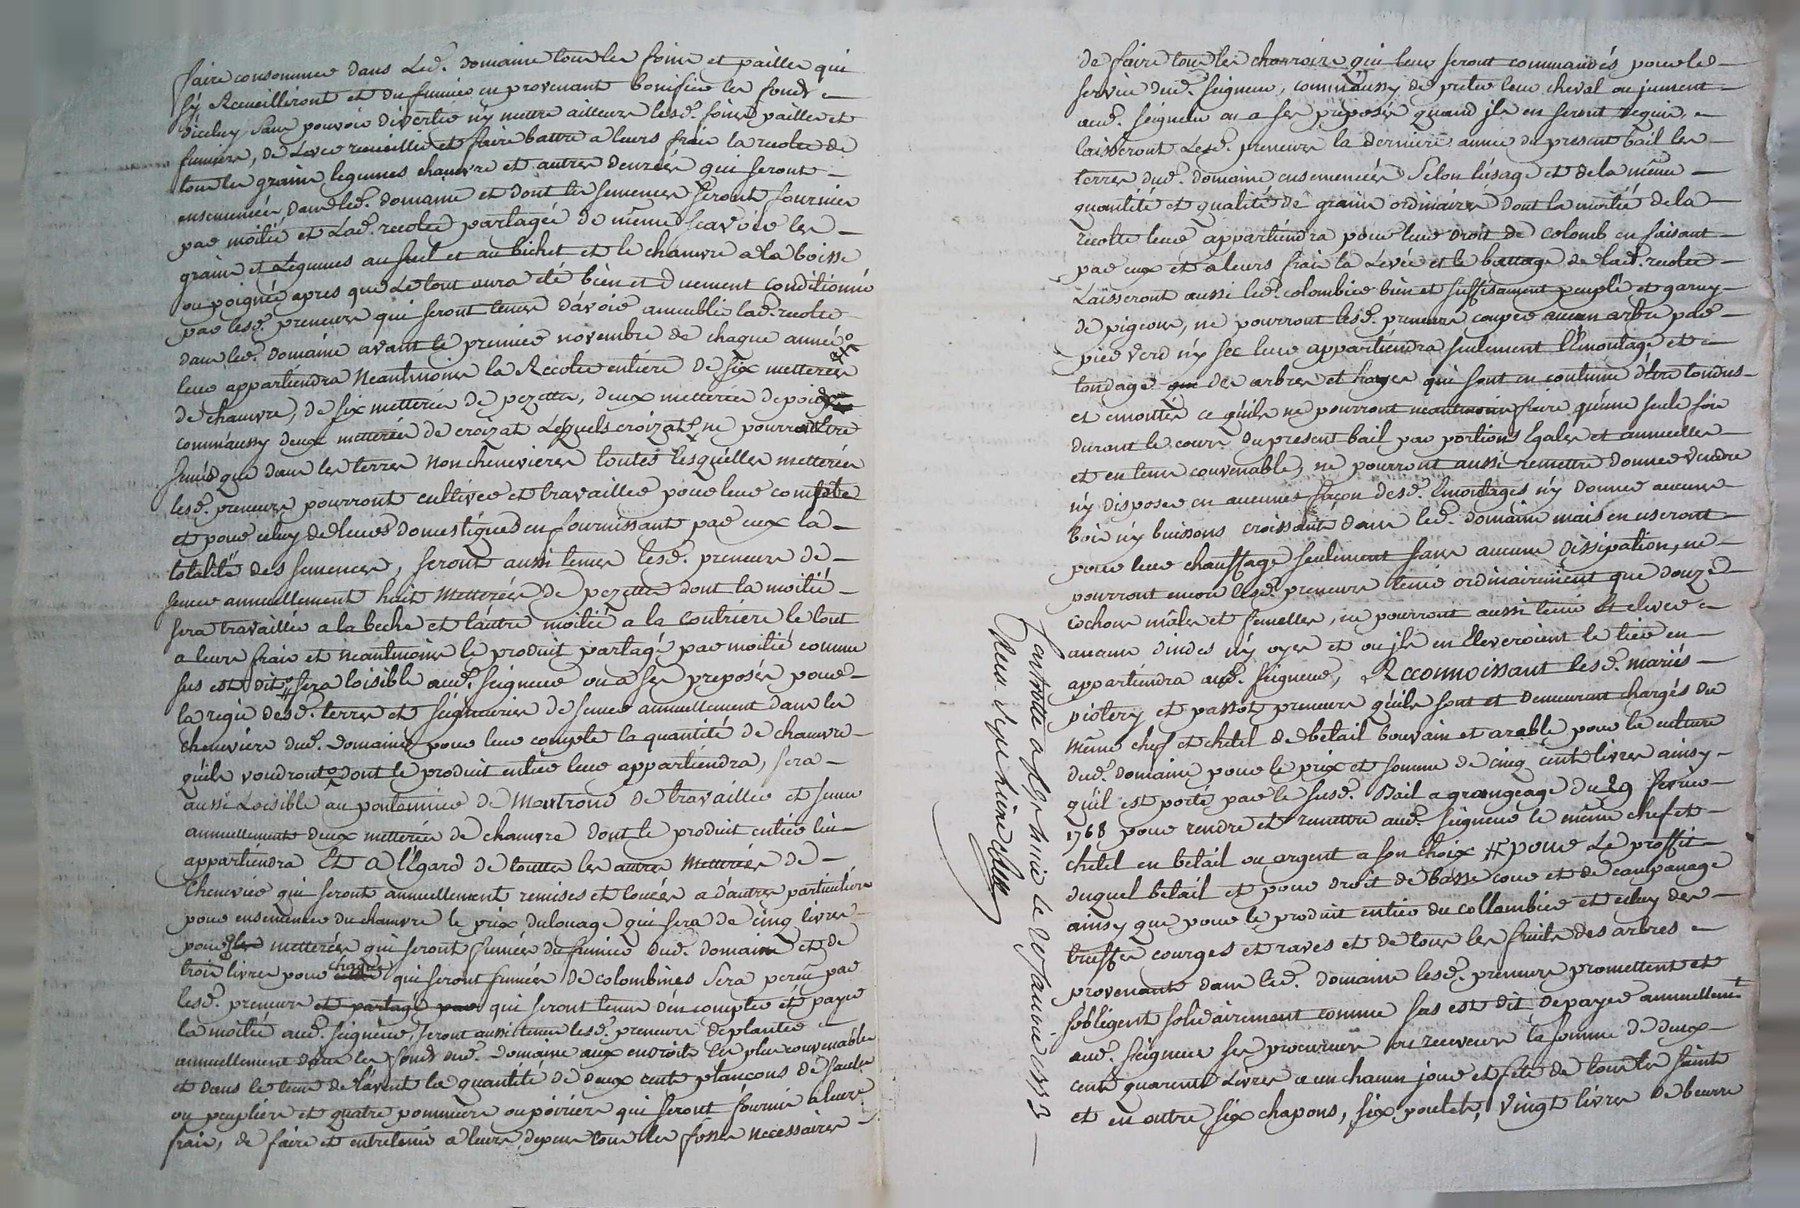 faire consommer dans Led. domaine tous les foins et pailles qui
s'y Recueilliront et du fumier en provenant bonifier les fonds
d'iceluy sans pouvoir divertir n'y mettre ailleurs lesd. foins pailles et
fumiers, de Lever recueillir et faire battre a leurs frais la recolte de
tous les grains legumes chanvre et autres denrées qui seront
ensemencées dans led. domaine et dont les semences seront fournies
par moitié et Lad. recolte partagée de même scavoir les
grains et Legumes au seul et au bichet et le chanvre a la boisse
ou poignée apres que Le tout aura été bien et duement conditionné
par lesd. preneurs qui seront tenus d'avoir ameubli lad. recolte
dans led. domaine avant le premier novembre de chaque année
leur appartiendra Neantmoins la Recolte entiere de six metterées
de chanvre, de six metterées de pezettes, deux metterées de pois
comm'aussy deux metterées de croizat Lesquels croizats ne pourront être
semés que dans les terres non chenevieres toutes lesquelles metterées
lesd. preneurs pourront cultiver et travailler pour leur compte
et pour celuy de leurs domestiques en fournissant par eux la
totalité des semences, seront aussi tenus lesd. preneurs de
semer annuellement huit metterées de pezettes dont la moitié
sera travaillée a la beche et l'autre moitié a la coutriere le tout
a leurs frais et neantmoins le produit partagé par moitié comme
sus est dit sera loisible aud. seigneur ou a ses preposés pour
la regie desd. terres et seigneuries de semer annuellement dans les
chenevieres dud. domaine pour leur compte la quantité de chanvre
qu'ils voudront dont le produit entier leur appartiendra, sera
aussi Loisible au pontonnier de Montrond de travailler et semer
annuellement deux metterées de chanvre dont le produit entier lui
appartiendra Et a l'égard de toutes les autres metterées de
chenevier qui seront annuellement remises et louées a d'autres particuliers
pour ensemencer du chanvre le prix du louage qui sera de cinq livres
pour les metterées qui seront fumées du fumier dud. domaine et de
trois livres pour chaque qui seront fumées de colombines sera perçu par
lesd. preneurs et partagé par qui seront tenus d'en compter et payer
la moitié aud. seigneur, seront aussi tenus lesd. preneurs de planter
annuellement dans les fonds dud. domaine aux endroits les plus convenables
et dans le tems de l'avent la quantité de deux cents plançons de saules
ou peupliers et quatre pommiers ou poiriers qui seront fournis a leurs
frais, de faire et entretenir a leurs depens tous les fossés necessaires
de faire tous les charrois qui leur seront commandés pour le
service dud. seigneur, comm'aussy de preter leur cheval ou jument
aud. seigneur ou a ses preposés quand ils en seront requis,
laisseront Lesd. preneurs la derniere année du present bail les
terres dud. domaine ensemencées selon l'usage et de la même
quantité et qualité de grains ordinaires dont la moitié de la
recolte leur appartiendra pour leur droit de colomb en faisant
par eux et a leurs frais la Levée et le battage de lad. recolte
Laisseront aussi led. colombier bien et suffisament peuplé et garny
de pigeons, ne pourront lesd. preneurs couper aucun arbre par
pied verd n'y sec leur appartiendra seulement l'émontage et
tondage des arbres et hayes qui sont en coutume d'être tondus
et émontés ce qu'ils ne pourront neantmoins faire qu'une seule fois
durant le cours du present bail par portions Egales et annuelles
et en tems convenable, ne pourront aussi remettre donner vendre
n'y disposer en aucunes façon desd. émontages n'y donner aucuns
bois n'y buissons croissants dans led. domaine mais en useront
pour leur chauffage seulement sans aucune dissipation, ne
pourront encore lesd. preneurs tenir ordinairement que douze
cochons mâles et femelles, ne pourront aussi tenir Et elever
aucuns dindes n'y oyes et ou ils en Eleveroient le tier en
appartiendra aud. seigneur, Reconnoissant lesd. mariés
piotery et passot preneurs qu'ils sont et demeurent chargés du
même chef et chetel de bétail bouvain et arable pour la culture
dud. domaine pour le prix et somme de cinq cent livres ainsy
qu'il est porté par le susd. Bail a grangeage du 29 fevrier
1768 pour rendre et remettre aud. seigneur le même chef et
chetel en betail ou argent a son choix # pour Le proffit
duquel betail et pour droit de basse cour et de campanage
ainsy que pour le produit entier du collombier et celuy des
truffes courges et raves et de tous les fruits des arbres
provenants dans led. domaine lesd. preneurs promettent et
s'obligent solidairement comme sus est dit de payer annuellement
aud. seigneur ses procureurs ou receveurs la somme de deux
cent quarante Livres a un chacun jour et fête de tous les saints
et en outre six chapons, six poulets, vingt livres de beurre